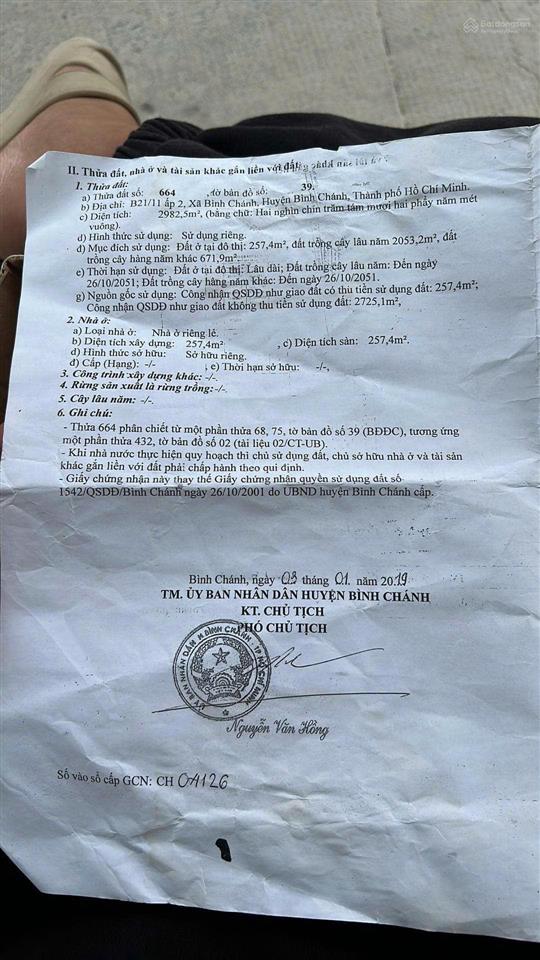 Batdongsan
II. Thửa đất, nhà ở và tài sản khác gắn liền với đất
1. Thửa đất:
a) Thửa đất số: 664 , tờ bản đồ số: 39.
b) Địa chỉ: B21/11 ấp 2, Xã Bình Chánh, Huyện Bình Chánh, Thành phố Hồ Chí Minh.
c) Diện tích: 2982,5m² (bằng chữ: Hai nghìn chín trăm tám mươi hai phẩy năm mét
vuông).
d) Hình thức sử dụng: Sử dụng riêng.
đ) Mục đích sử dụng: Đất ở tại đô thị: 257,4m², đất trồng cây lâu năm 2053,2m², đất
trồng cây hàng năm khác 671,9m².
e) Thời hạn sử dụng: Đất ở tại đô thị: Lâu dài; Đất trồng cây lâu năm: Đến ngày
26/10/2051; Đất trồng cây hàng năm khác: Đến ngày 26/10/2051.
g) Nguồn gốc sử dụng: Công nhận QSDĐ như giao đất có thu tiền sử dụng đất: 257,4m²;
Công nhận QSDĐ như giao đất không thu tiền sử dụng đất: 2725,1m²,
2. Nhà ở:
a) Loại nhà ở: Nhà ở riêng lẻ.
b) Diện tích xây dựng: 257,4m² , c) Diện tích sàn: 257,4m².
d) Hình thức sở hữu: Sở hữu riêng.
đ) Cấp (Hạng): -/- , e) Thời hạn sở hữu: -/-,
3. Công trình xây dựng khác: -/-.
4. Rừng sản xuất là rừng trồng:-/-.
5. Cây lâu năm: -/-.
6. Ghi chú:
- Thửa 664 phân chiết từ một phần thửa 68, 75, tờ bản đồ số 39 (BĐĐC), tương ứng
một phần thửa 432, tờ bản đồ số 02 (tài liệu 02/CT-UB).
- Khi nhà nước thực hiện quy hoạch thì chủ sử dụng đất, chủ sở hữu nhà ở và tài sản
khác gắn liền với đất phải chấp hành theo qui định.
- Giấy chứng nhận này thay thế Giấy chứng nhận quyền sử dụng đất số
1542/QSDĐ/Bình Chánh ngày 26/10/2001 do UBND huyện Bình Chánh cấp.
Bình Chánh, ngày 03 tháng 01 năm 2019
TM. ỦY BAN NHÂN DÂN HUYỆN BÌNH CHÁNH
KT. CHỦ TỊCH
PHÓ CHỦ TỊCH
ỦY BAN NHÂN DÂN H BÌNH CHÁNH - TP HỒ CHÍ MINH
Nguyễn Văn Hồng
Số vào sổ cấp GCN: CH 04126